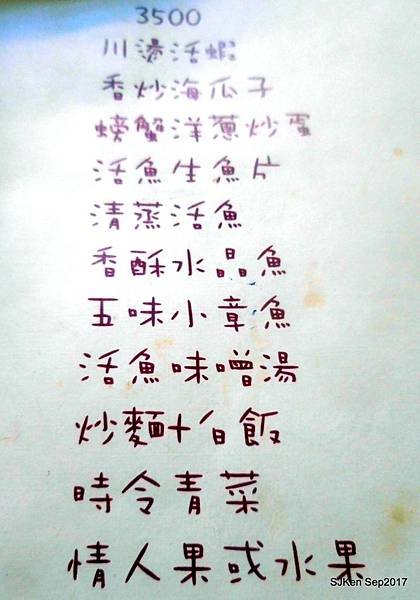 3500
川燙活蝦
香炒海瓜子
螃蟹洋蔥炒蛋
活魚生魚片
清蒸活魚
香酥水晶魚
五味小章魚
活魚味噌湯
炒麵+白飯
時令青菜
情人果或水果
SJKen Sep2017